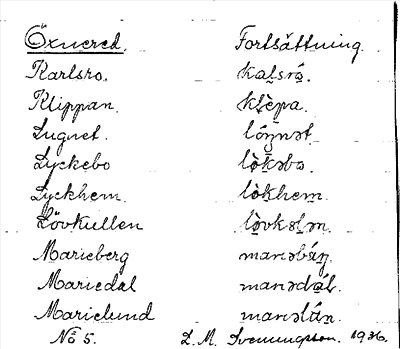 Öxnered. Fortsättning.
Karlsro. kaḷsró̱.
Klippan. kḷè̱pa.
Lugnet. lóŋnət
Lyckebo lò̱kəbo.
Lyckhem. lò̱khem.
Lövkullen lò̱vkələn.
Marieberg marəbárj.
Mariedal marədáḷ.
Marielund marəlún.
No 5. L. M. Svenungsson. 1936.